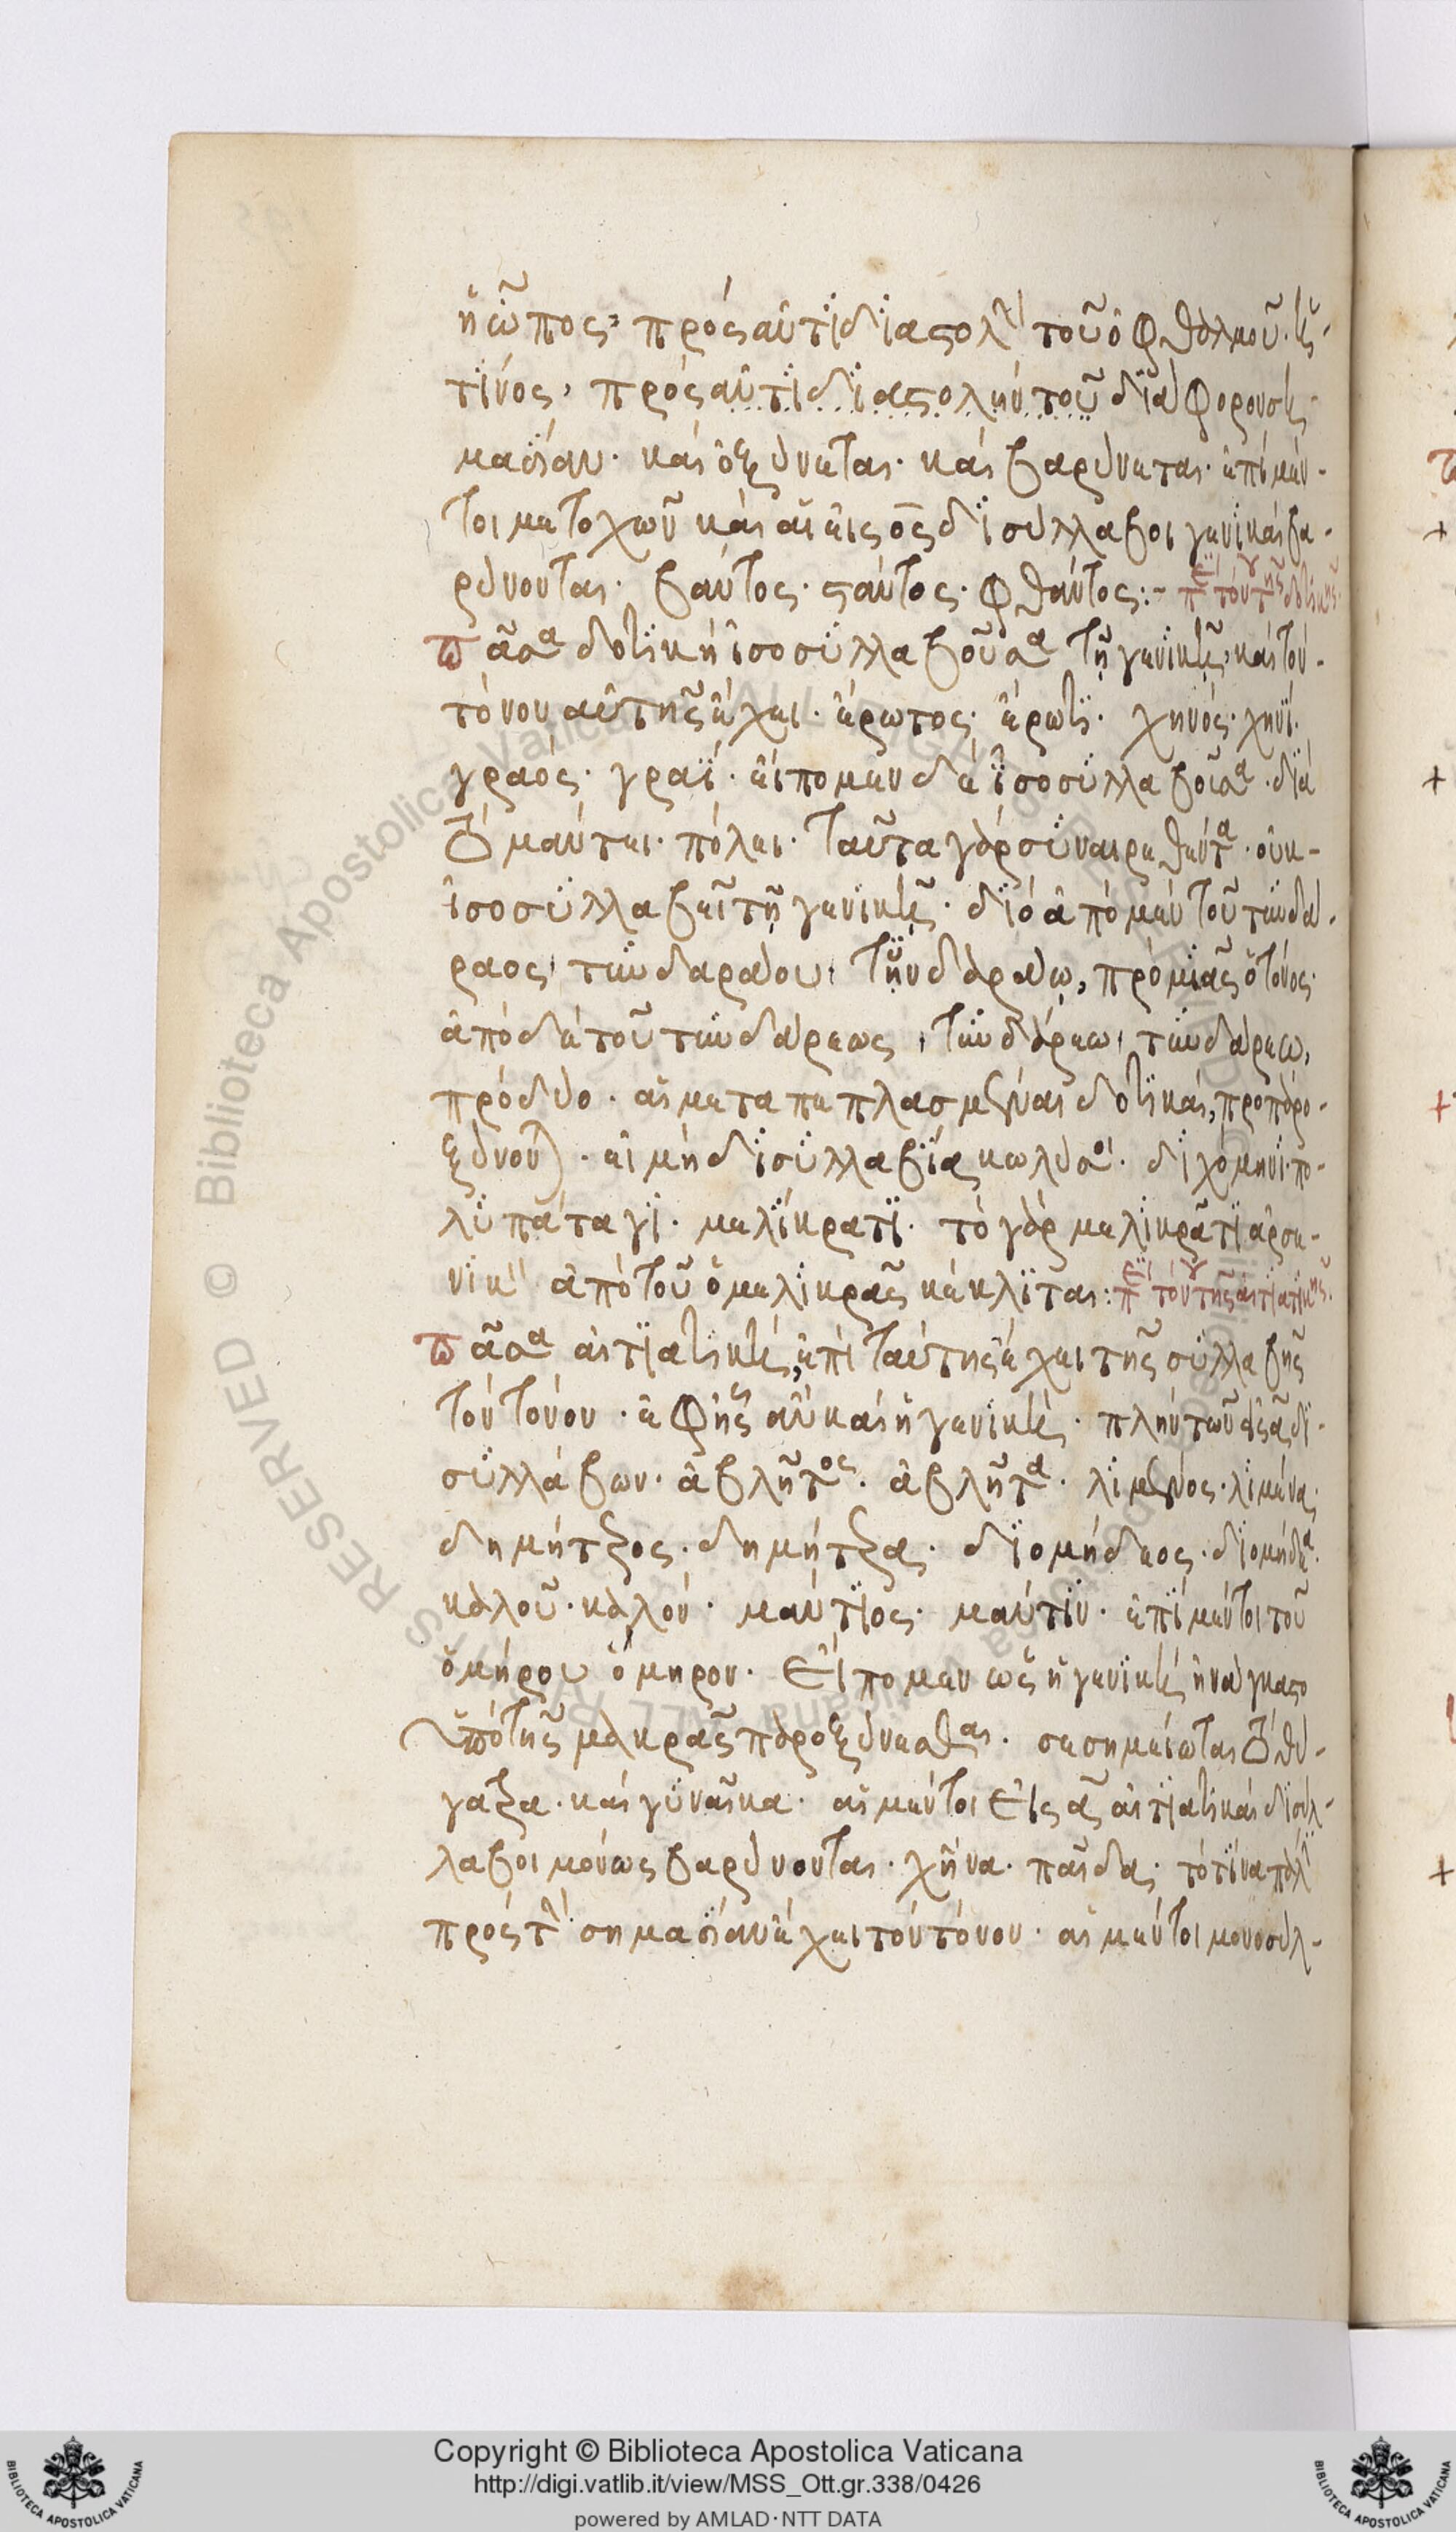 ἢ ὦπος, πρὸς ἀντιδιαστολὴν τοῦ ὀφθαλμοῦ. ἢ
τϊνὸς, πρὸς ἀντιδιαστολὴν τοῦ διάφορου ση-
μασίαν. καὶ ὀξύνεται. καὶ βαρύνεται. ἐπὶ μέν-
τοι μετοχῶν καὶ αἱ εἰς ος δισύλλαβοι γενικαὶ βα-
ρύνονται. βάντος. στάντος. φθάντος:- περὶ τόνου τῆς δοτικῆς.
πᾶσα δοτικὴ ἰσοσυλλαβοῦσα τῆ γενικῆ, καὶ τὸν
τόνον αὐτῆς ἔχει. ἔρωτος. ἔρωτι. χηνός. χηνί.
γραός. γραΐ. εἴπομεν δὲ ἰσοσυλλαβοῦσα. διὰ
τὸ μάντει. πόλει. ταῦτα γὰρ συναιρεθέντα. οὐκ
ἰσοσυλλαβεῖ τῆ γενικῆ. διὸ ἀπὸ μὲν τοῦ τυνδά-
ραος, τυνδαράου, τυνδαράω, πρὸ μιᾶς ὁ τόνος.
ἀπὸ δὲ τοῦ τυνδάρεως, τυνδάρεω, τυνδάρεω,
πρὸ δύο. αἱ μεταπεπλασμέναι δοτικαὶ, προπαρο-
ξύνονται. εἰ μὴ δισυλλαβία κωλύσοι. διχόμηνι. πο-
λυπάταγι. μελίκρατι. τὸ γὰρ μελικρᾶτι ἀρσε-
νικὸν ἀπὸ τοῦ ὁ μελικρᾶς κέκλιται: περὶ τόνου τῆς αἰτιατικῆς.
πᾶσα αἰτιατικὴ, ἐπὶ ταύτης ἔχει τῆς συλλαβῆς
τὸν τόνον. ἐφ' ἧς ἂν καὶ ἡ γενικὴ. πλὴν τῶν εἰς α δι-
συλλάβων. ἀβλῆτος. ἀβλῆτα. λιμένος. λιμένα.
δημήτρος. δημήτρα. διομήδεος. διομήδεα.
καλοῦ. καλόν. μάντιος. μάντιν. ἐπὶ μέντοι τοῦ
ὁμήρου ὅμηρον. Εἴπομεν ὡς ἡ γενικὴ ἠνάγκαστο
ὑπὸ τῆς μακρᾶς παροξύνεσθαι. σεσημείωται τὸ θύ-
γατρα. καὶ γυναῖκα. αἱ μέντοι Εἰς α αἰτιατικαὶ δισύλ-
λαβοι μόνως βαρύνονται. χῆνα. παῖδα. τὸ τινα πάλιν
πρὸς τὴν σημασίαν ἔχει τὸν τόνον. αἱ μέντοι μονοσύλ-
Copyright © Biblioteca Apostolica Vaticana
http://digi.vatlib.it/view/MSS_Ott.gr.338/0426
powered by AMLAD·NTT DATA